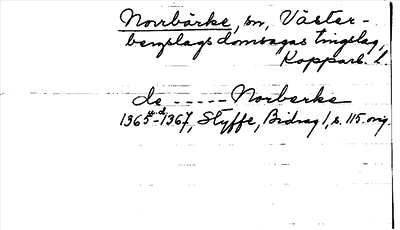 Norrbärke, sn, Väster-
bergslags domsagas tingslag,
Kopparb. l.
de ----- Norberke
1365 - 1367, Styffe, Bidrag 1, s. 115 orig.